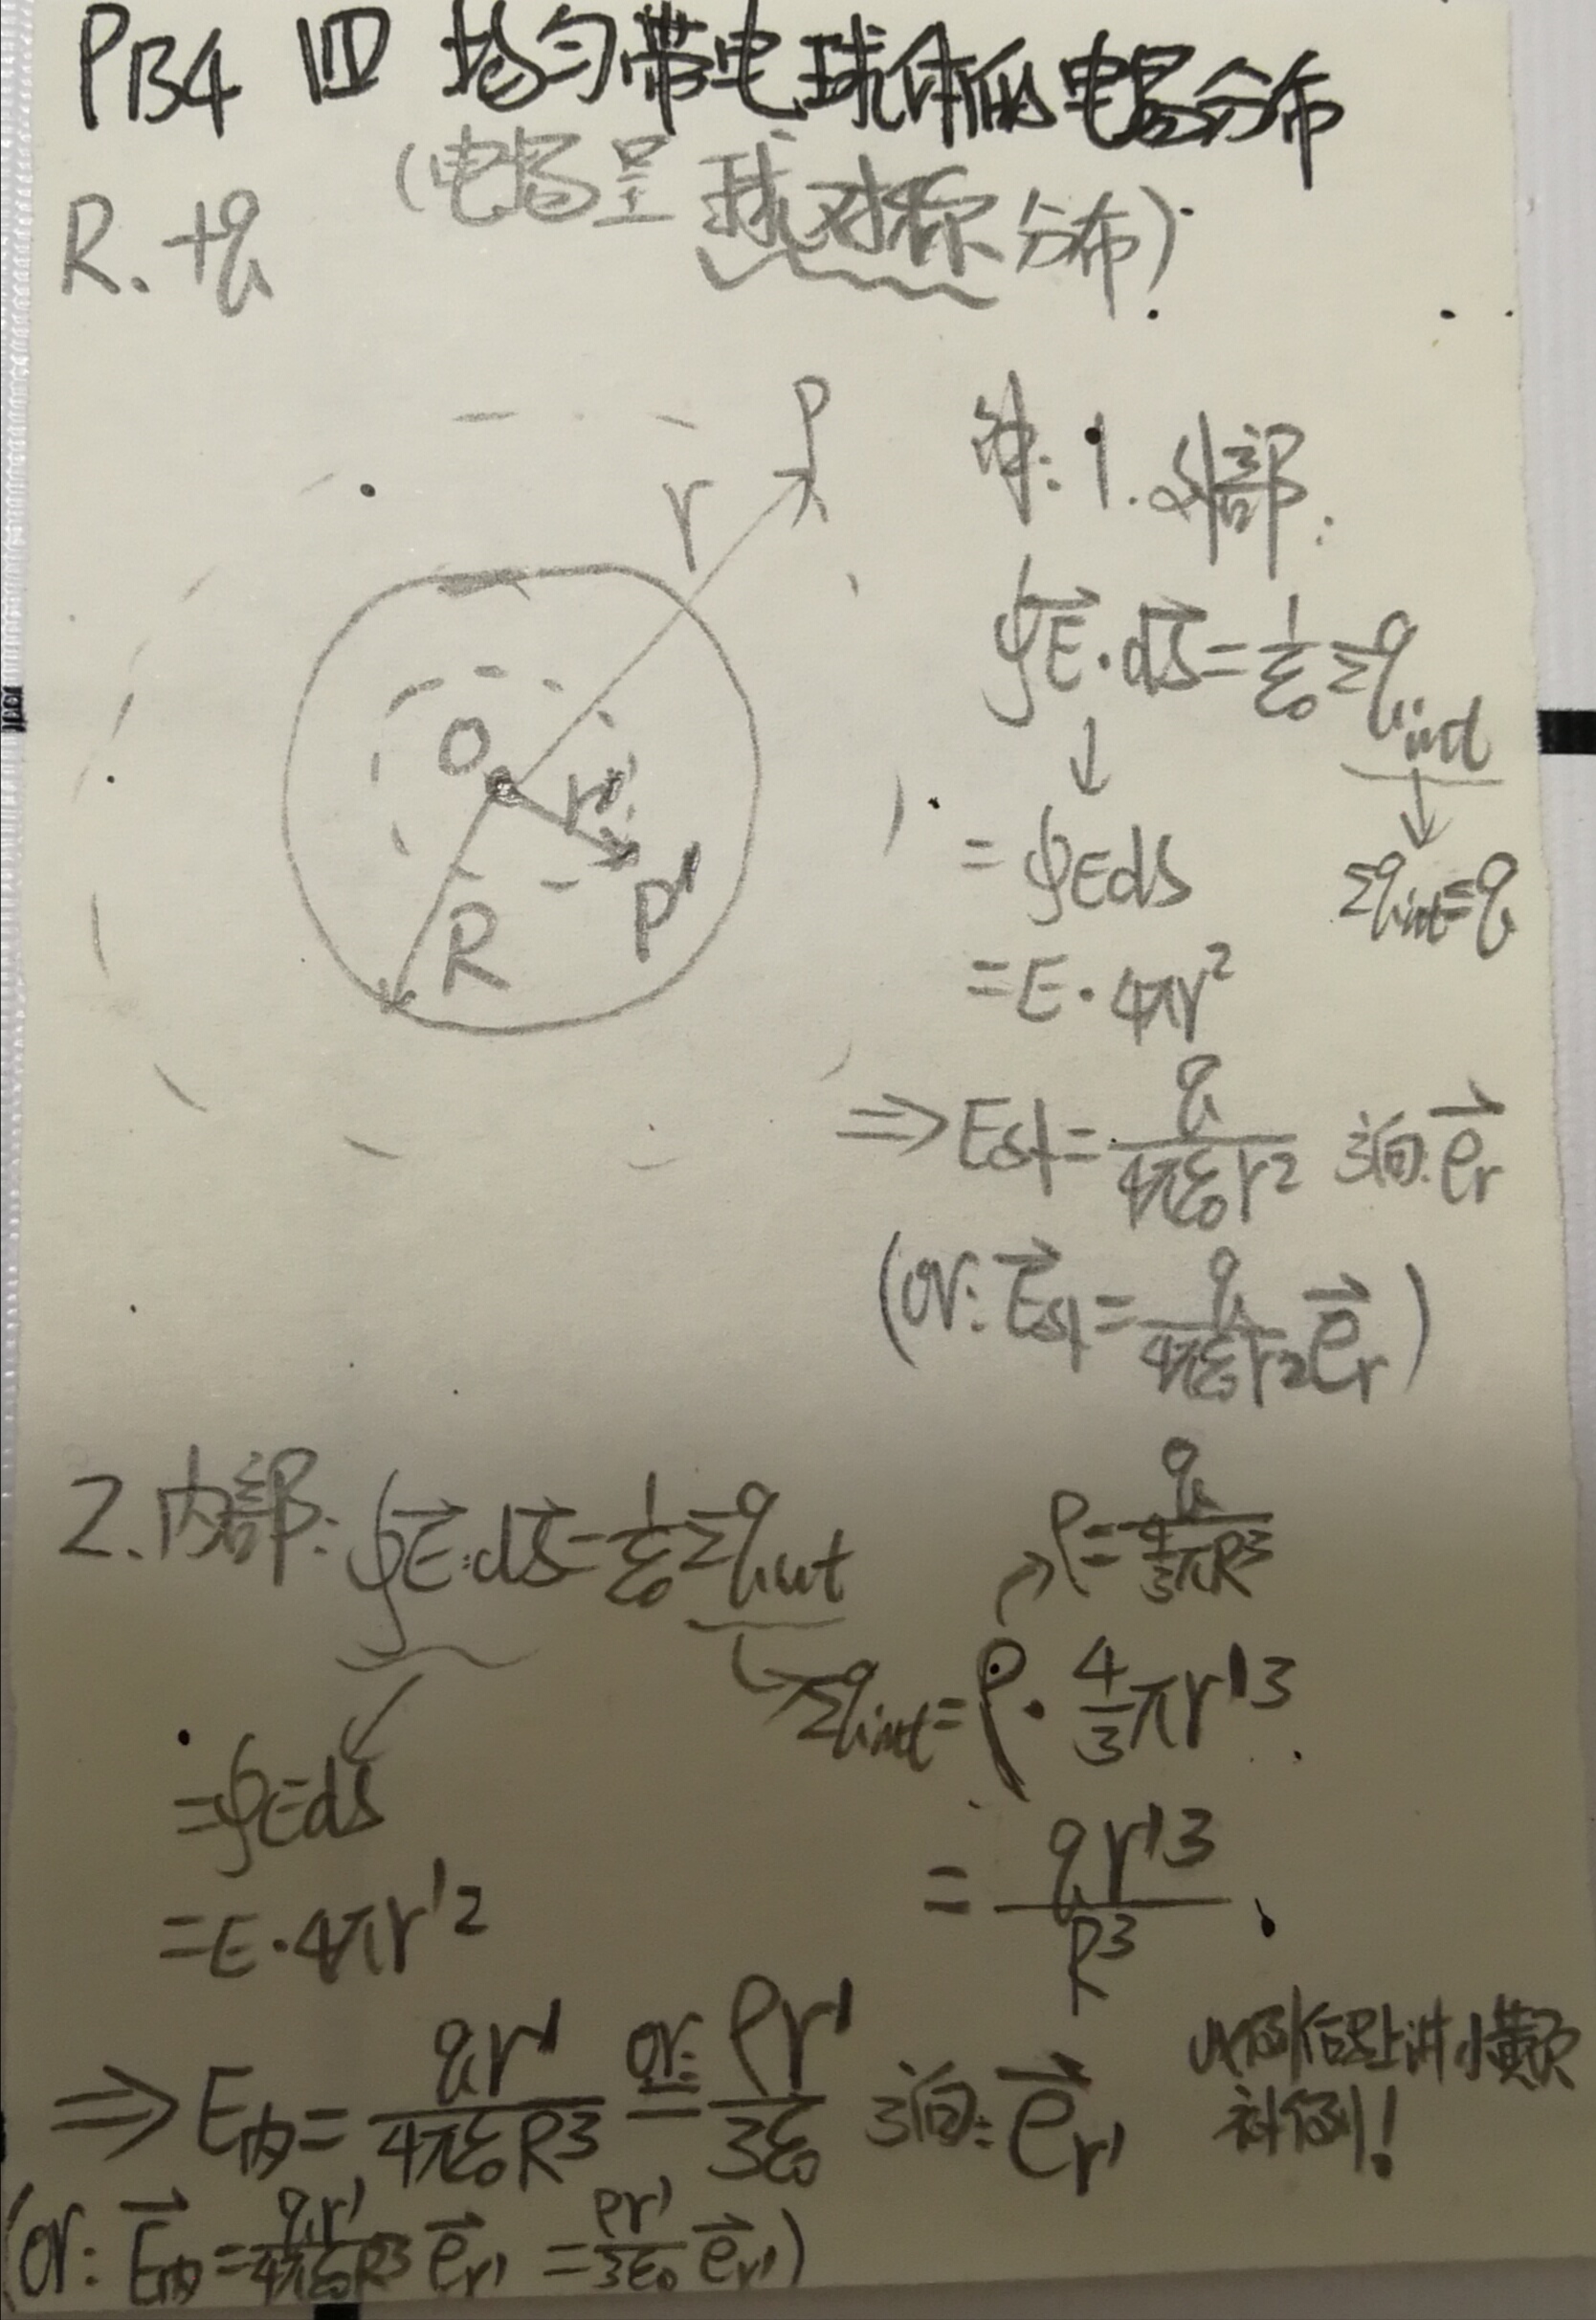 P134 四 均匀带电球体的电场分布
(电场呈球对称分布)
R. +q
P
r
O
r'
P'
R
解: 1. 外部:
∮E⃗·dS⃗ = 1/ε₀ Σq_int
↓
= ∮EdS
Σq_int = q
= E·4πr²
⇒ E外 = q/(4πε₀r²) 方向: e⃗r
(or: E⃗外 = q/(4πε₀r²) e⃗r)
2. 内部: ∮E⃗·dS⃗ = 1/ε₀ Σq_int
ρ = q/(4/3 πR³)
Σq_int = ρ· 4/3 πr'³
= ∮EdS
= qr'³/R³
= E·4πr'²
⇒ E内 = qr'/(4πε₀R³) or: = ρr'/(3ε₀) 方向: e⃗r'
补例!
(or: E⃗内 = qr'/(4πε₀R³) e⃗r' = ρr'/(3ε₀) e⃗r')